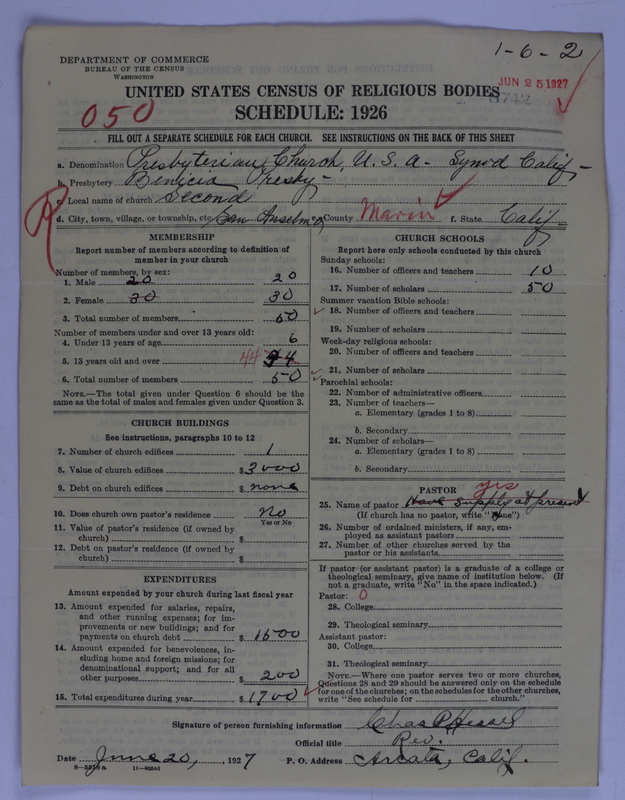 1-6-2
DEPARTMENT OF COMMERCE
BUREAU OF THE CENSUS
WASHINGTON
JUN 25 1927
8742
UNITED STATES CENSUS OF RELIGIOUS BODIES
050
SCHEDULE: 1926
FILL OUT A SEPARATE SCHEDULE FOR EACH CHURCH. SEE INSTRUCTIONS ON THE BACK OF THIS SHEET
a. Denomination Presbyterian Church, U.S.A- Synod Calif-
b. Presbytery Benicia Presby-
c. Local name of church Second
d. City, town, village, or township, etc. San Anselmo County Marin f. State Calif
MEMBERSHIP
Report number of members according to definition of
member in your church
Number of members, by sex:
1. Male 20 20
2. Female 30 30
3. Total number of members 50
Number of members under and over 13 years old:
4. Under 13 years of age 6
5. 13 years old and over 44 44
6. Total number of members 50
NOTE.—The total given under Question 6 should be
same as the total of males and females given under Question 3.
CHURCH BUILDINGS
See instructions, paragraphs 10 to 12
7. Number of church edifices 1
8. Value of church edifices $3000
9. Debt on church edifices $ none
10. Does church own pastor's residence No
Yes or No
11. Value of pastor's residence (if owned by
church) $
12. Debt on pastor's residence (if owned by
church) $
EXPENDITURES
Amount expended by your church during last fiscal year
13. Amount expended for salaries, repairs,
and other running expenses; for im-
provements or new buildings; and for
payments on church debt $1500
14. Amount expended for benevolences, in-
cluding home and foreign missions; for
denominational support; and for all
other purposes $200
15. Total expenditures during year $1700
CHURCH SCHOOLS
Report here only schools conducted by this church
Sunday schools:
16. Number of officers and teachers 10
17. Number of scholars 50
Summer vacation Bible schools:
18. Number of officers and teachers
19. Number of scholars
Week-day religious schools:
20. Number of officers and teachers
21. Number of scholars
Parochial schools:
22. Number of administrative officers
23. Number of teachers—
a. Elementary (grades 1 to 8)
b. Secondary
24. Number of scholars—
a. Elementary (grades 1 to 8)
b. Secondary
PASTOR yes
25. Name of pastor Have supply at present
(If church has no pastor, write "None")
26. Number of ordained ministers, if any, em-
ployed as assistant pastors
27. Number of other churches served by the
pastor or his assistants
If pastor (or assistant pastor) is a graduate of a college or
theological seminary, give name of institution below. (If
not a graduate, write "No" in the space indicated.)
Pastor: 0
28. College
29. Theological seminary
Assistant pastor:
30. College
31. Theological seminary
NOTE.—Where one pastor serves two or more churches,
Questions 28 and 29 should be answered only on the schedule
for one of the churches; on the schedules for the other churches,
write "See schedule for church."
Signature of person furnishing information Chas P Hessel
Official title Rev.
Date June 20, 1927 P. O. Address Arcata, Calif.